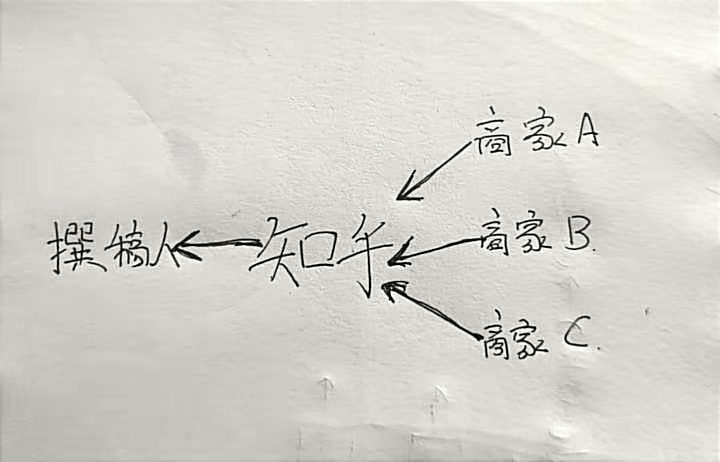 商家A
撰稿人 知乎 商家B.
商家C.